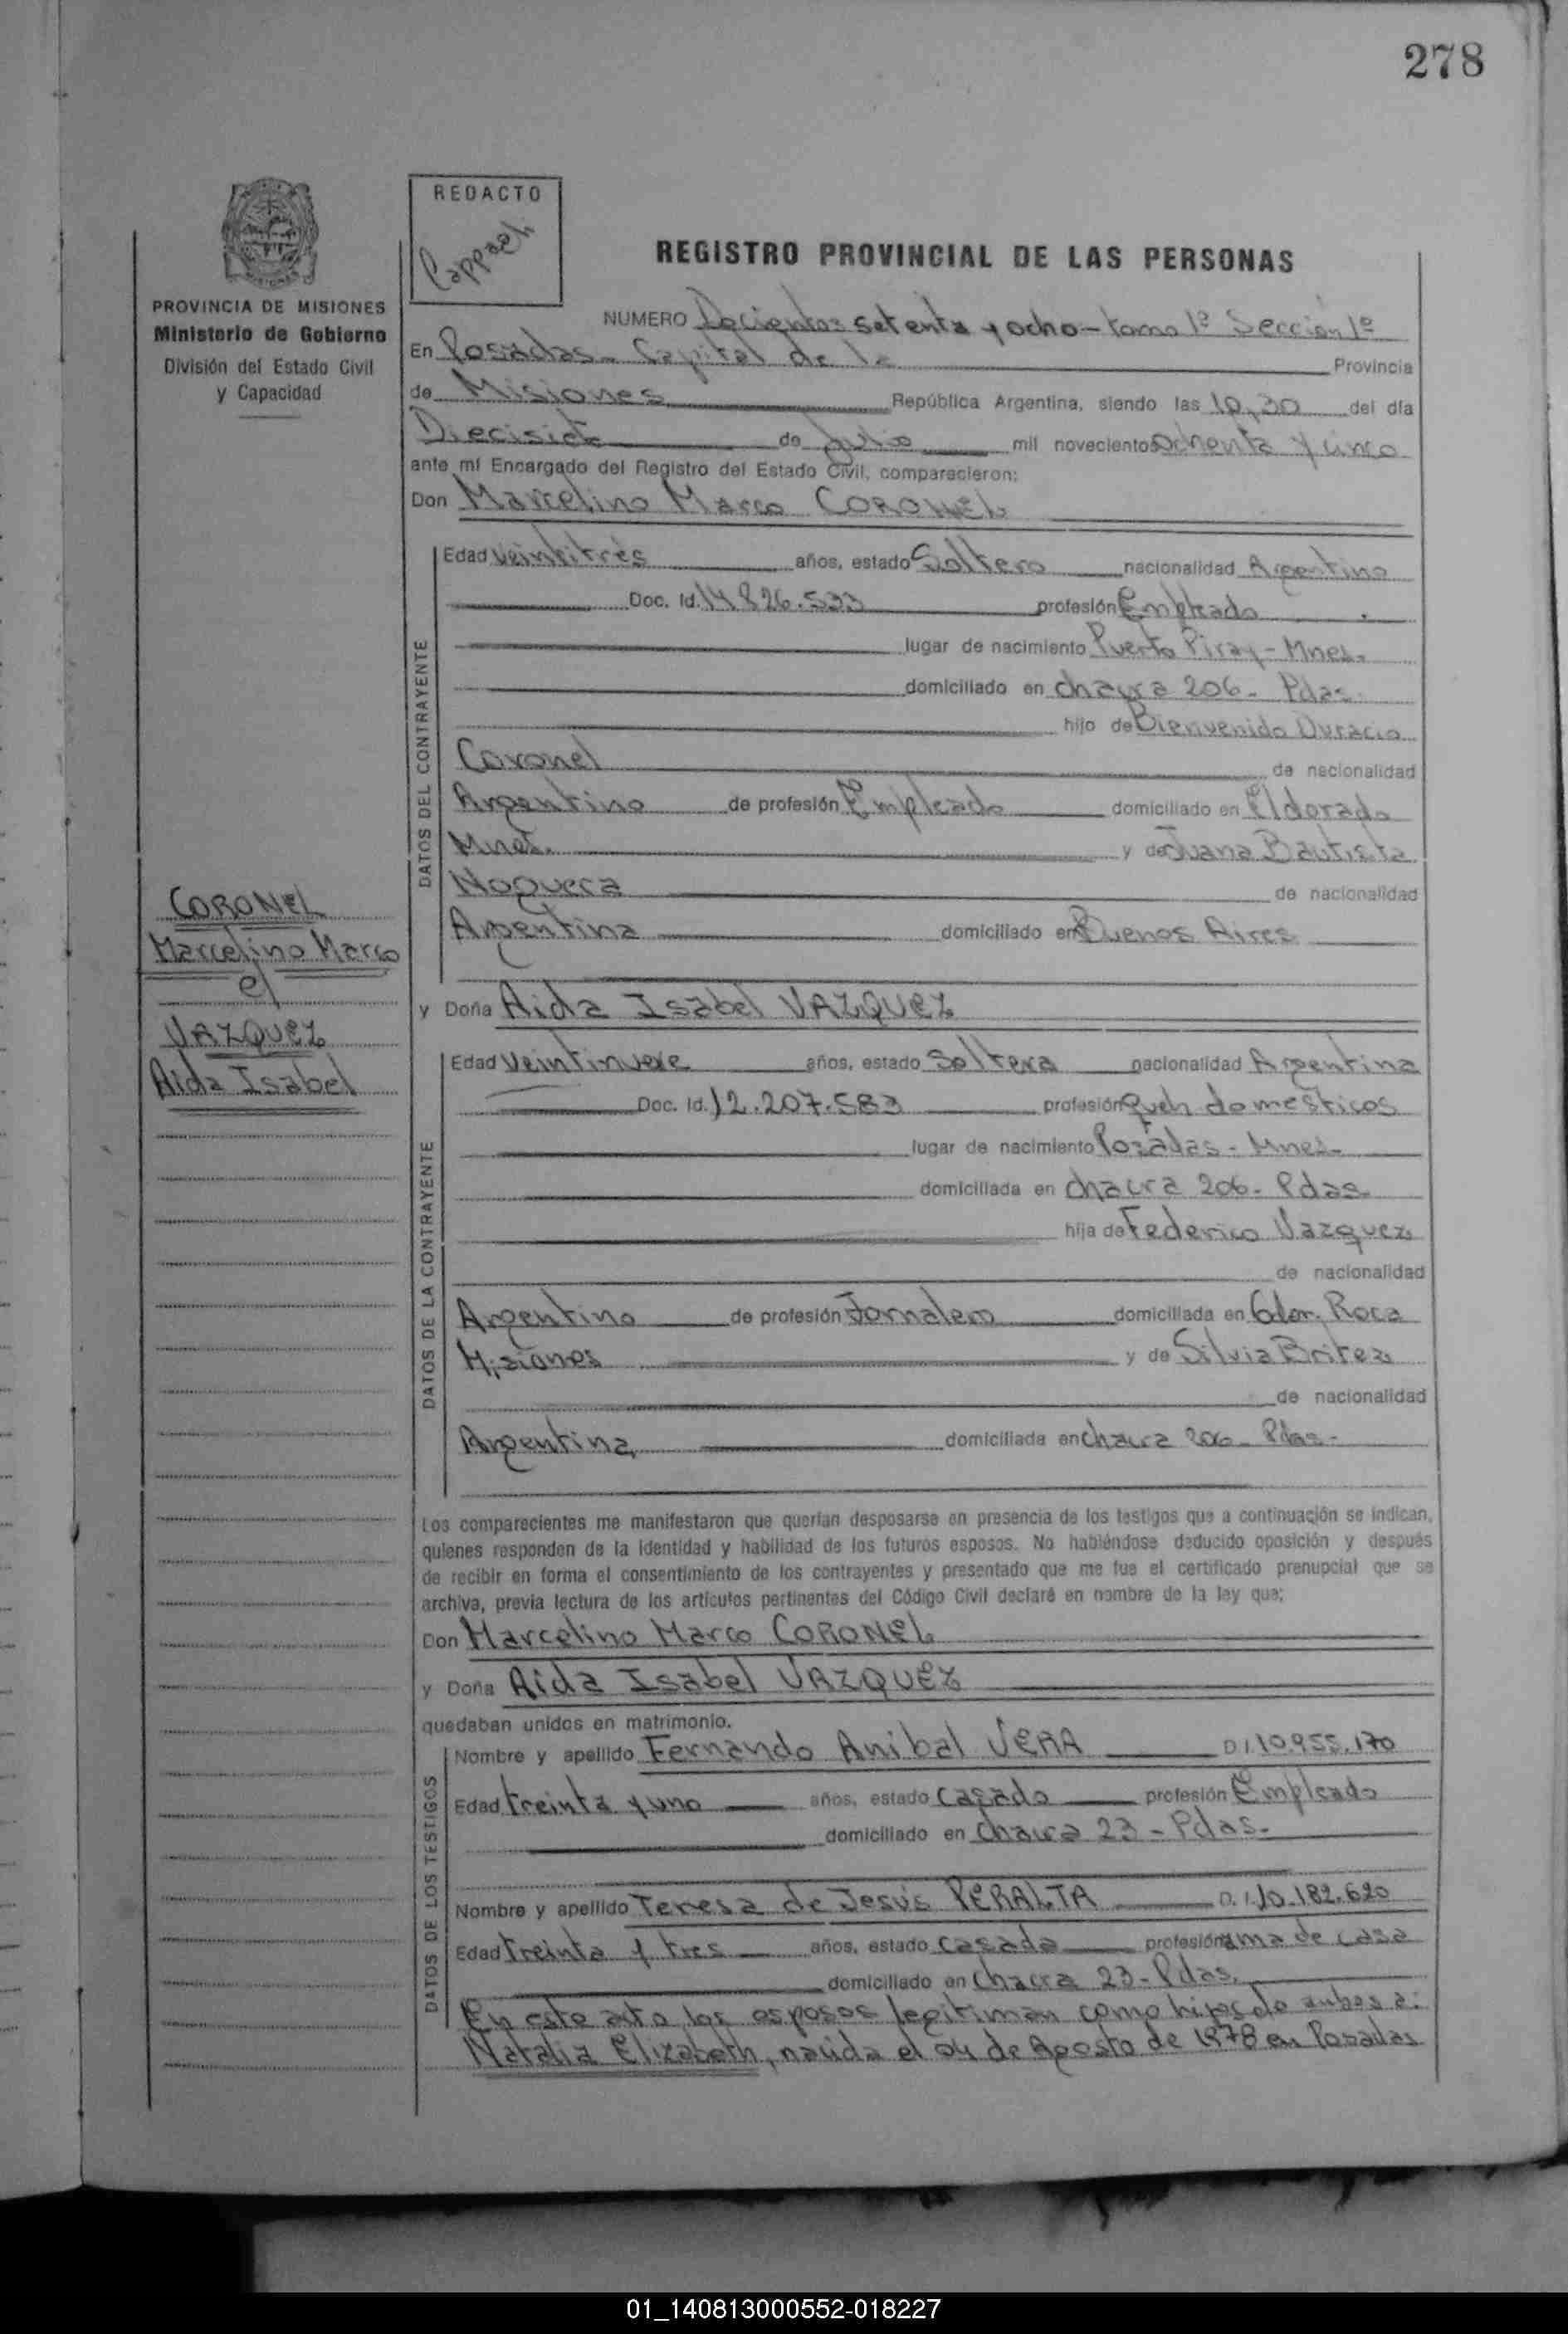 278
REDACTO
REGISTRO PROVINCIAL DE LAS PERSONAS
PROVINCIA DE MISIONES
Ministerio de Gobierno
División del Estado Civil
y Capacidad
NUMERO Docientos setenta y ocho - tomo 1º Sección 1º
En Posadas - Capital de la Provincia
de Misiones República Argentina, siendo las 10,30 del día
Diecisiete de Julio mil novecientos ochenta y cinco
ante mí Encargado del Registro del Estado Civil, comparecieron:
Don Marcelino Marco CORONEL
DATOS DEL CONTRAYENTE
Edad veintitrés años, estado Soltero nacionalidad Argentino
Doc. Id. 14826.533 profesión Empleado
lugar de nacimiento Puerto Piray - Mnes.
domiciliado en chacra 206 - Pdas.
hijo de Bienvenido
Coronel de nacionalidad
Argentino de profesión Empleado domiciliado en Eldorado
Mnes. y de Juana Bautista
Noguera de nacionalidad
Argentina domiciliado en Buenos Aires
CORONEL
Marcelino Marco
c/
VAZQUEZ
Aida Isabel
y Doña Aida Isabel VAZQUEZ
DATOS DE LA CONTRAYENTE
Edad veintinueve años, estado Soltera nacionalidad Argentina
Doc. Id. 12.207.583 profesión queh domésticos
lugar de nacimiento Posadas - Mnes.
domiciliada en chacra 206 - Pdas.
hija de Federico Vazquez
de nacionalidad
Argentino de profesión Jornalero domiciliada en Gdor. Roca
Misiones y de Silvia Britez
de nacionalidad
Argentina domiciliada en chacra 206 - Pdas -
Los comparecientes me manifestaron que querían desposarse en presencia de los testigos que a continuación se indican,
quienes responden de la identidad y habilidad de los futuros esposos. No habiéndose deducido oposición y después
de recibir en forma el consentimiento de los contrayentes y presentado que me fue el certificado prenupcial que se
archiva, previa lectura de los artículos pertinentes del Código Civil declaré en nombre de la ley que;
Don Marcelino Marco CORONEL
y Doña Aida Isabel VAZQUEZ
quedaban unidos en matrimonio.
DATOS DE LOS TESTIGOS
Nombre y apellido Fernando Anibal VERA D.I. 10.955.170
Edad treinta y uno años, estado casado profesión Empleado
domiciliado en chacra 23 - Pdas.
Nombre y apellido Teresa de Jesús PERALTA D.I. 10.182.620
Edad treinta y tres años, estado casada profesión ama de casa
domiciliado en chacra 23 - Pdas.
En este acto los esposos legitiman como hijos de ambos a:
Natalia Elizabeth, nacida el 04 de Agosto de 1978 en Posadas
01_140813000552-018227